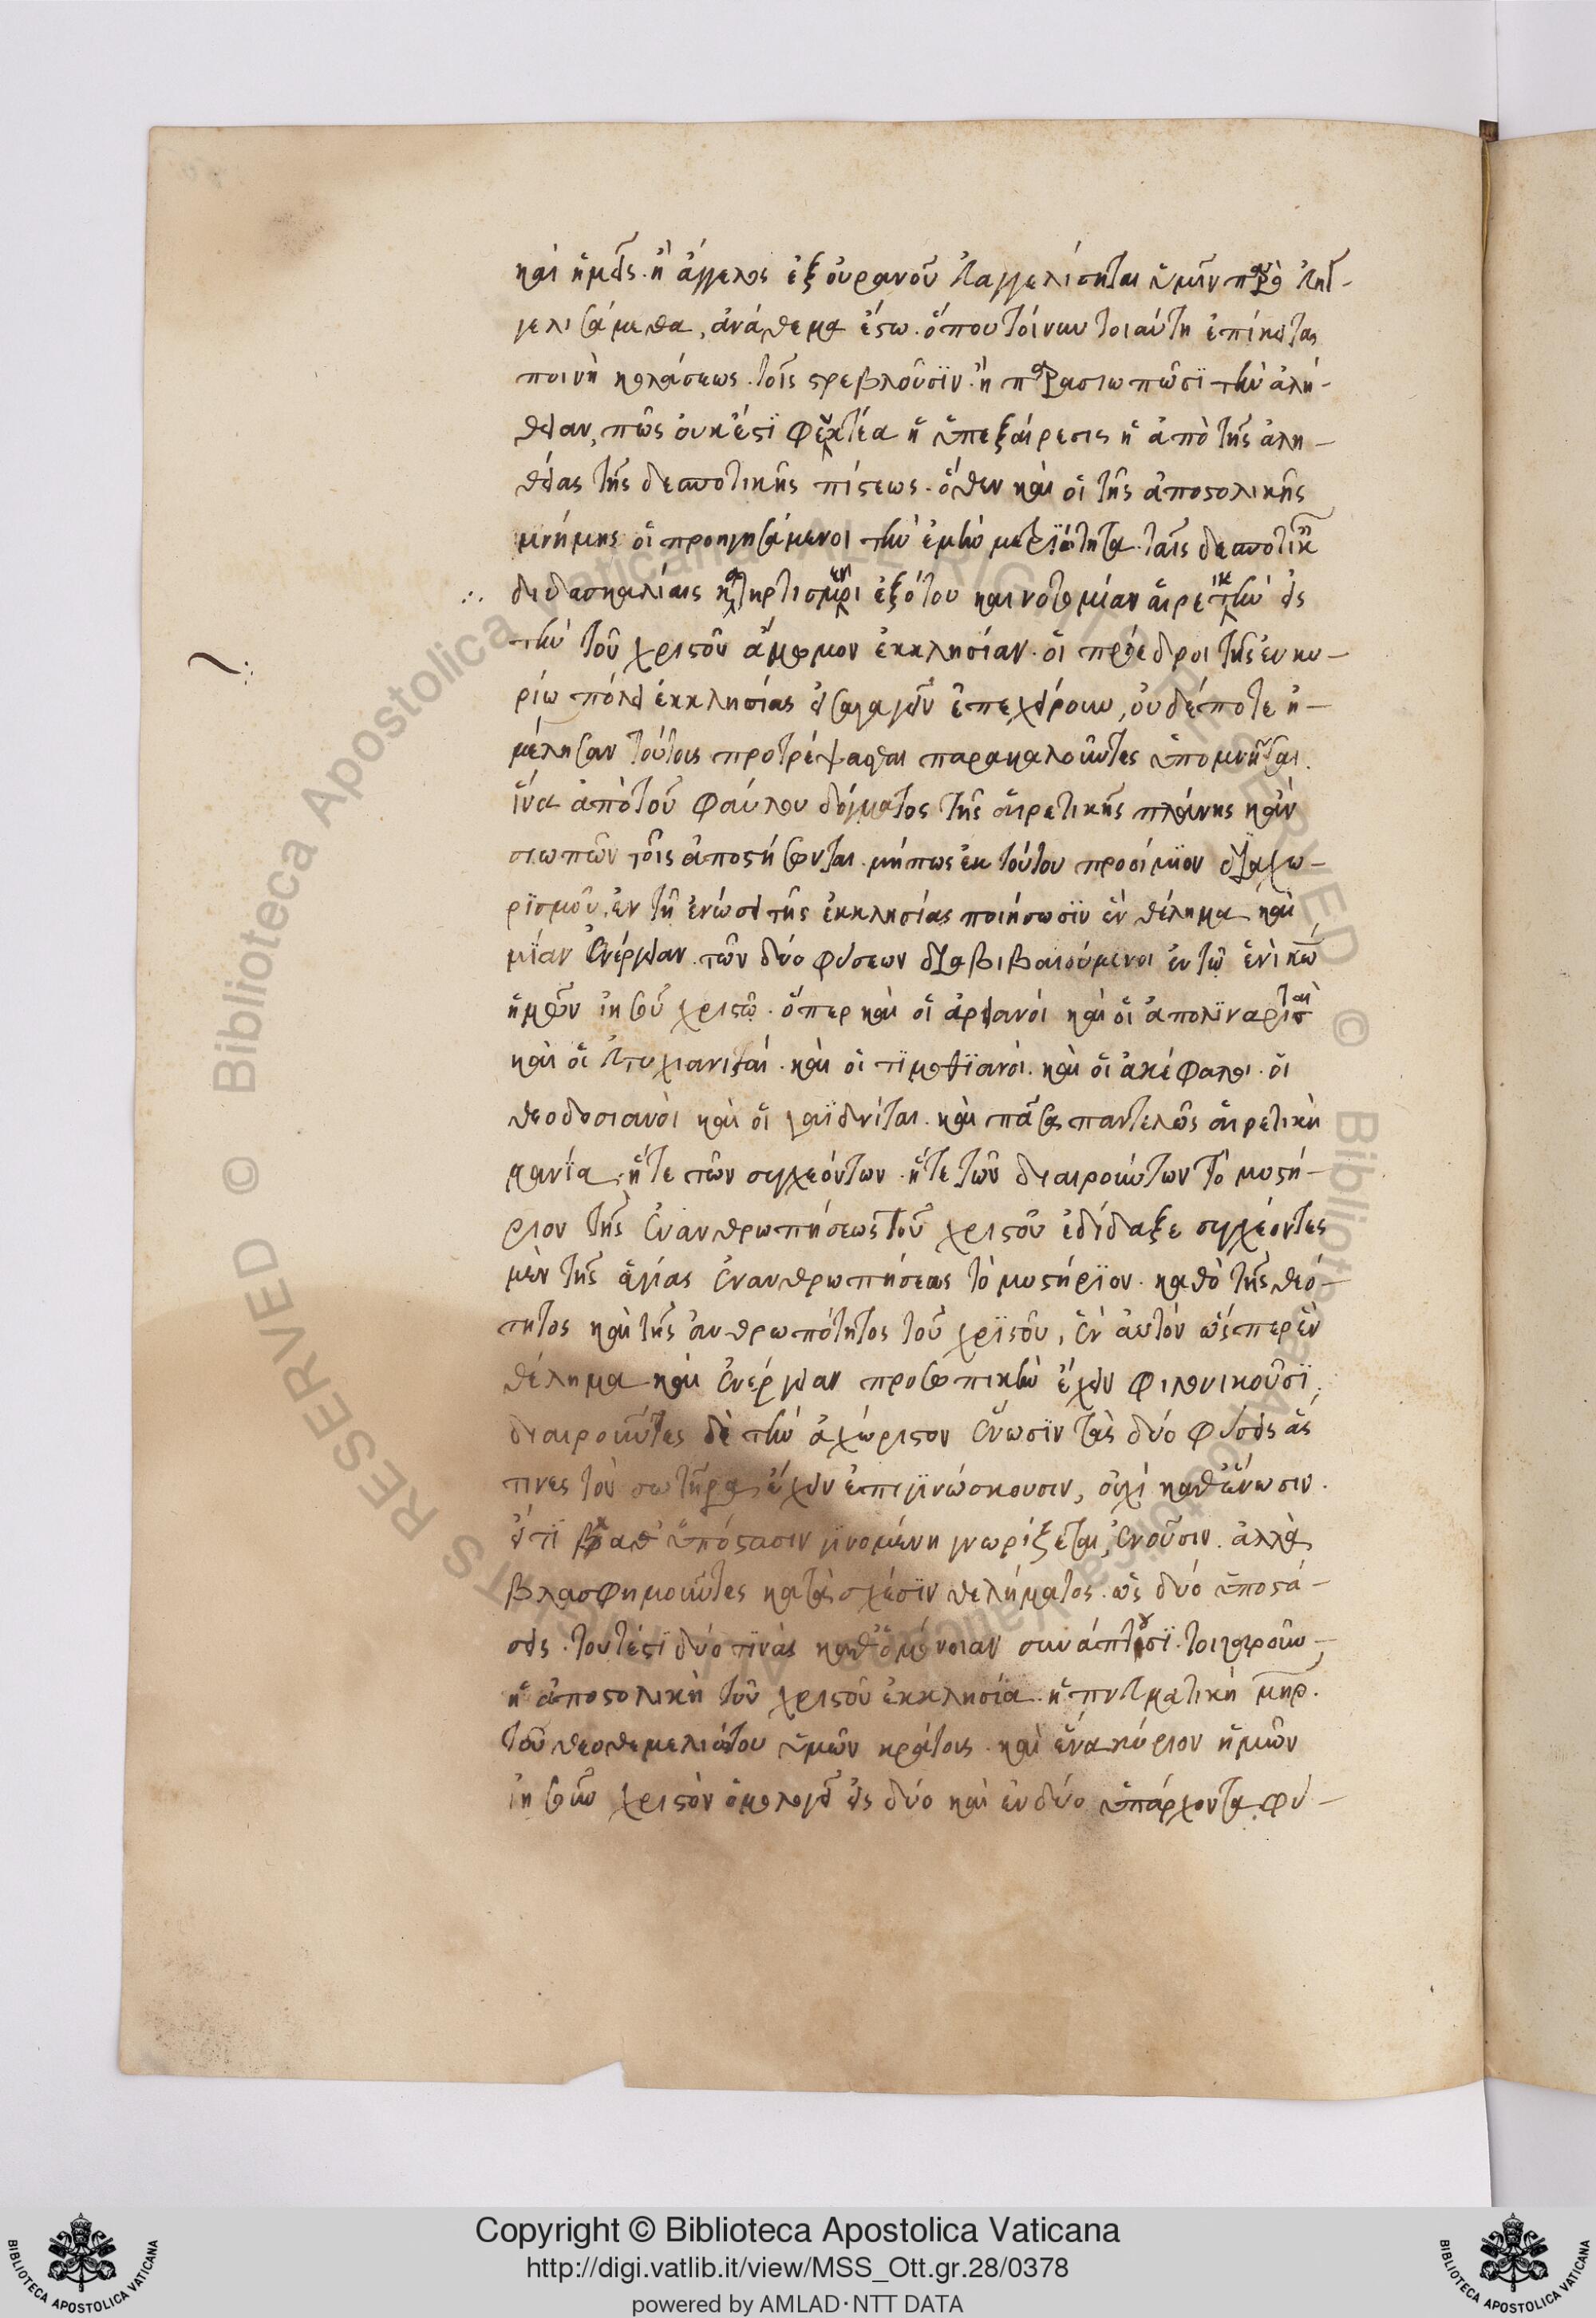 καὶ ἡμεῖς ἢ ἄγγελος ἐξ οὐρανοῦ εὐαγγελίσηται ὑμῖν παρ' ὃ εὐηγ-
γελισάμεθα, ἀνάθεμα ἔστω. ὅπου τοίνυν τοιαύτη ἐπίκειται
ποινὴ κολάσεως τοῖς στρεβλοῦσϊν ἢ παρασιωπῶσϊ τὴν ἀλή-
θειαν, πῶς οὐκ ἔστϊ φευκτέα ἡ ὑπεξαίρεσις ἡ ἀπὸ τῆς ἀλη-
θείας τῆς δεσποτικῆς πίστεως. ὅθεν καὶ οἱ τῆς ἀποστολικῆς
μνήμης οἱ προηγησάμενοι τὴν ἐμὴν μετρϊότητα ταῖς δεσποτικαῖς
διδασκαλίαις κατηρτισμένοι ἐξότου καινοτομίαν αἱρετικὴν εἰς
τὴν τοῦ χριστοῦ ἄμωμον ἐκκλησίαν οἱ πρόεδροι τῆς ἐν κυ-
ρίω πόλει ἐκκλησίας εἰσαγαγεῖν ἐπεχείρουν, οὐδέποτε ἠ-
μέλησαν τούτοις προτρέψασθαι παρακαλοῦντες ὑπομνῆσαι
ἵνα ἀπὸ τοῦ φαύλου δόγματος τῆς αἱρετικῆς πλάνης κἂν
σιωπῶντες ἀποστήσονται. μήπως ἐκ τούτου προοίμϊον διαχω-
ρϊσμοῦ ἐν τῆ ἑνώσει τῆς ἐκκλησίας ποιήσωσϊν ἓν θέλημα καὶ
μϊαν ἐνέργειαν τῶν δύο φύσεων διαβεβαιούμενοι ἐν τῶ ἑνὶ κω
ἡμῶν ἰησοῦ χριστῶ. ὅπερ καὶ οἱ ἀρειανοὶ καὶ οἱ ἀπολϊναρισταὶ
καὶ οἱ εὐτυχιανισταὶ. καὶ οἱ τϊμοθεϊανοί. καὶ οἱ ἀκέφαλοι. οἱ
θεοδοσιανοὶ καὶ οἱ γαϊανῖται. καὶ πᾶσα παντελῶς αἱρετικὴ
μανία. ἤτε τῶν συγχεόντων. ἤτε τῶν διαιρούντων τὸ μυστή-
ριον τῆς ἐνανθρωπήσεως τοῦ χριστοῦ ἐδίδαξε συγχέοντες
μὲν τῆς ἁγίας ἐνανθρωπήσεως τὸ μυστήρϊον. καθὸ τῆς θεό-
τητος καὶ τῆς ἀνθρωπότητος τοῦ χρϊστοῦ, ἓν αὐτὸν ὥσπερ ἓν
θέλημα καὶ ἐνέργειαν προσωπικὴν ἔχειν φιλονικοῦσϊ,
διαιροῦντες δὲ τὴν ἀχώριστον ἕνωσϊν τὰς δύο φύσεις ἅς
τινες τὸν σωτῆρα ἔχειν ἐπιγινώσκουσιν, οὐχὶ καθ' ἕνωσιν.
ἥτϊ καθ' ὑπόστασιν γινομένη γνωρίζεται, ἑνοῦσιν. ἀλλὰ
βλασφημοῦντες κατὰ σχέσϊν θελήματος. ὡς δύο ὑποστά-
σεις. τουτέστϊ δύο τϊνὰς καθ' ὁμόνοιαν συνάπτουσϊ. τοιγαροῦν,
ἡ ἀποστολικὴ τοῦ χριστοῦ ἐκκλησία. ἡ πνευματικὴ μηρ.
τοῦ θεοθεμελιώτου ὑμῶν κράτους. καὶ ἕνα κύριον ἡμῶν
ἰησοῦν χριστὸν ὁμολογεῖ εἰς δύο καὶ ἐν δύο ὑπάρχοντα φύ-
Copyright © Biblioteca Apostolica Vaticana
http://digi.vatlib.it/view/MSS_Ott.gr.28/0378
powered by AMLAD·NTT DATA